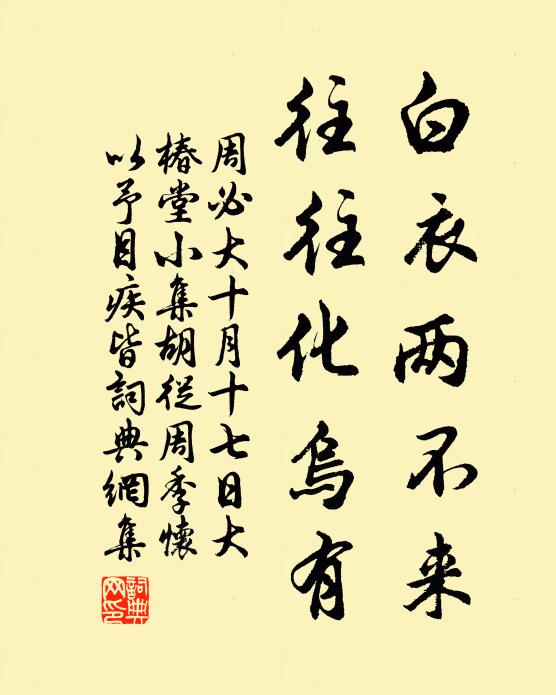 白衣两不来
往往化乌有
周必大十月十七日大
椿堂小集胡從周季懷
以予目疾皆詞典網集
詞典网印